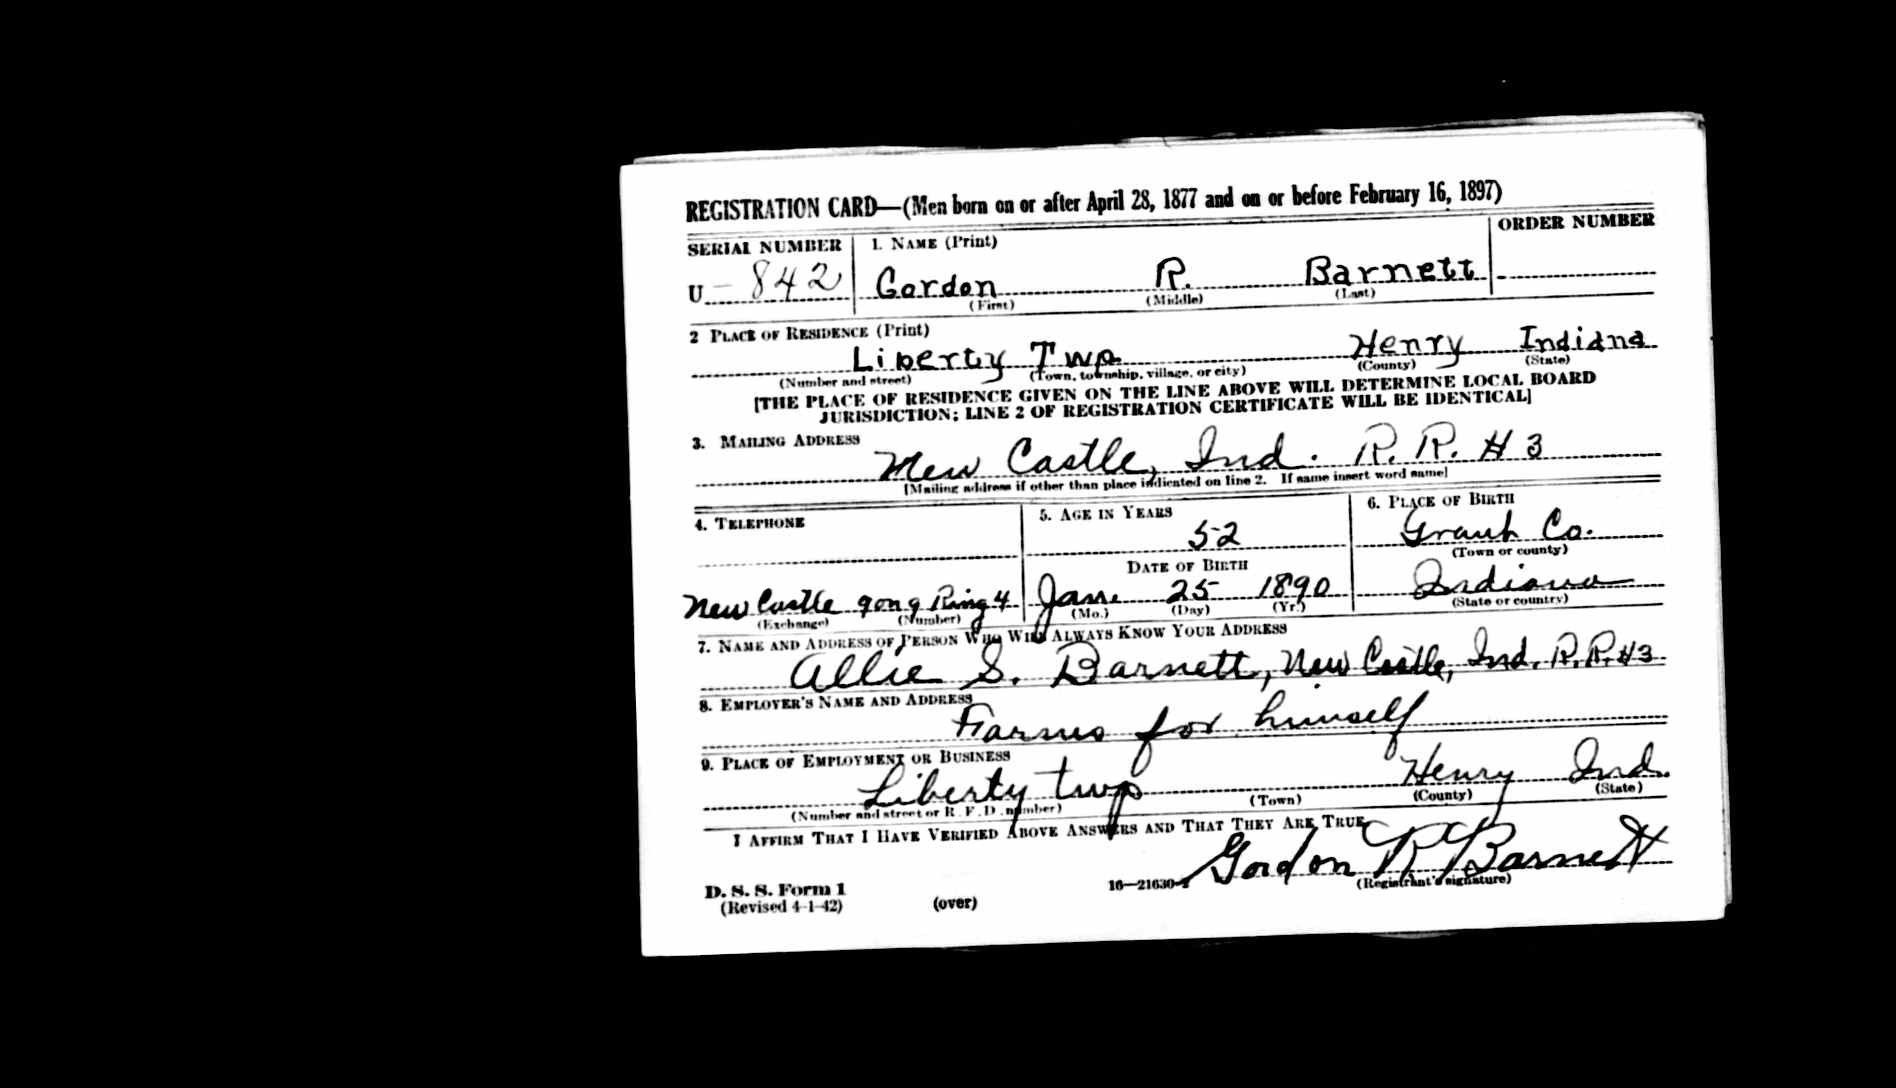 REGISTRATION CARD—(Men born on or after April 28, 1877 and on or before February 16, 1897)
SERIAL NUMBER 1. NAME (Print) ORDER NUMBER
U- 842 Gordon R. Barnett
(First) (Middle) (Last)
2 PLACE OF RESIDENCE (Print)
Liberty Twp. Henry Indiana
(Number and street) (Town, township, village, or city) (County) (State)
[THE PLACE OF RESIDENCE GIVEN ON THE LINE ABOVE WILL DETERMINE LOCAL BOARD
JURISDICTION; LINE 2 OF REGISTRATION CERTIFICATE WILL BE IDENTICAL]
3. MAILING ADDRESS
New Castle, Ind. R. R. # 3
[Mailing address if other than place indicated on line 2. If same insert word same]
4. TELEPHONE 5. AGE IN YEARS 6. PLACE OF BIRTH
52 Grant Co.
(Town or county)
DATE OF BIRTH
New Castle Ring 4 Jan. 25 1890 Indiana
(Exchange) (Number) (Mo.) (Day) (Yr.) (State or country)
7. NAME AND ADDRESS OF PERSON WHO WILL ALWAYS KNOW YOUR ADDRESS
Allie S. Barnett, New Castle, Ind. R.R.#3
8. EMPLOYER'S NAME AND ADDRESS
Farms for himself
9. PLACE OF EMPLOYMENT OR BUSINESS
Liberty twp Henry Ind.
(Number and street or R. F. D. number) (Town) (County) (State)
I AFFIRM THAT I HAVE VERIFIED ABOVE ANSWERS AND THAT THEY ARE TRUE.
Gordon R Barnett
D. S. S. Form 1 16—21630-1 (Registrant's signature)
(Revised 4-1-42) (over)